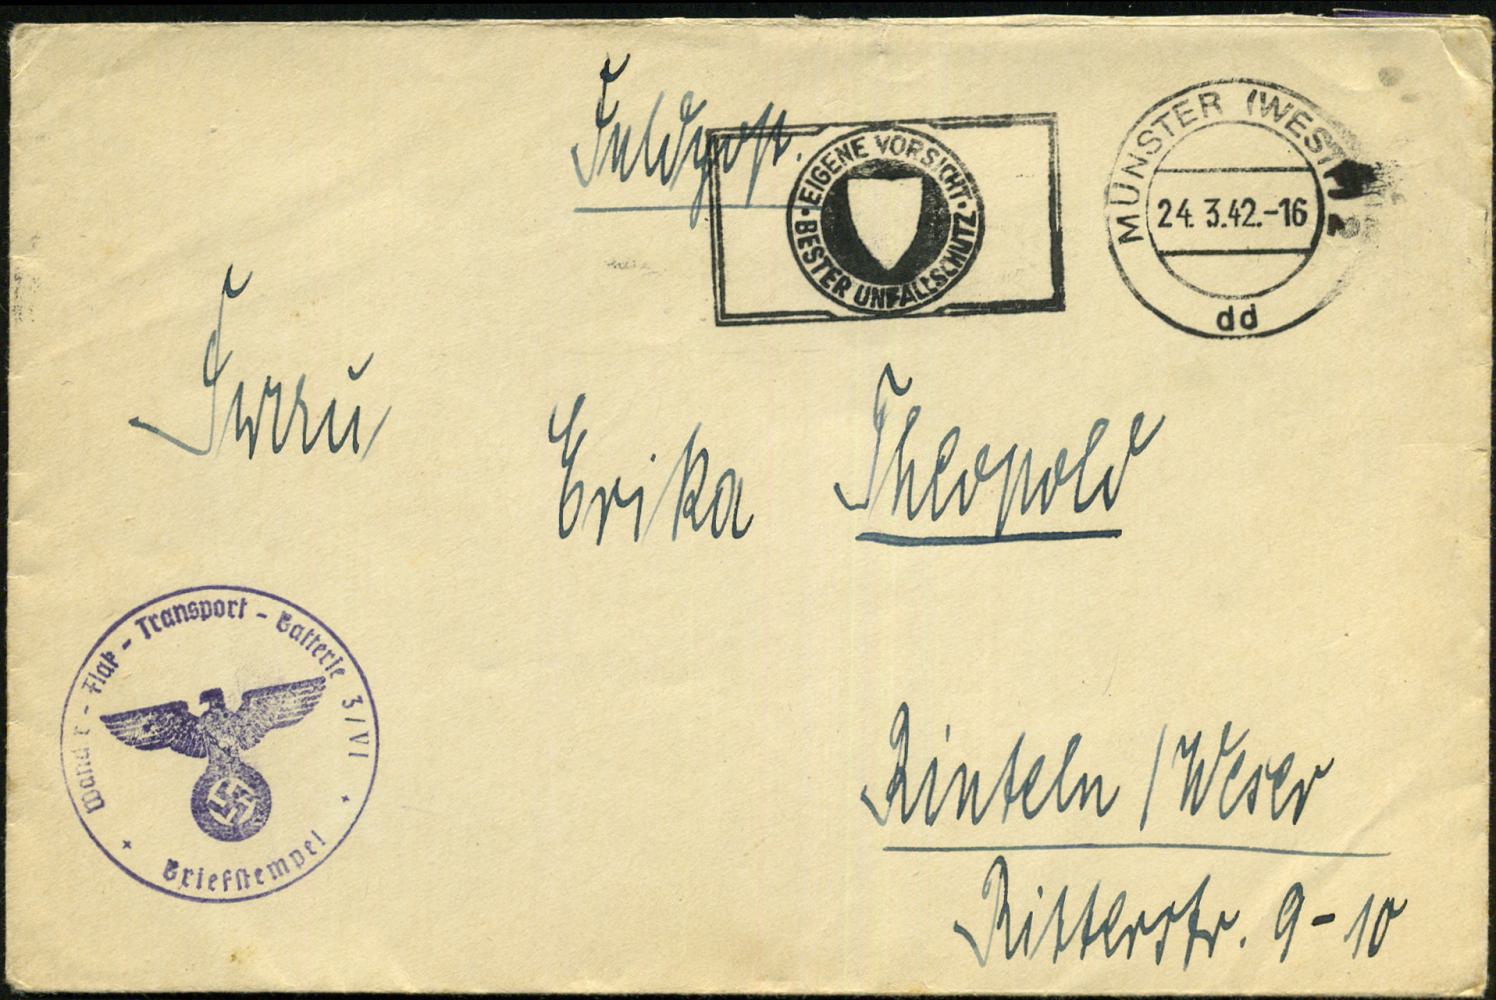 Feldpost.
EIGENE VORSICHT · BESTER UNFALLSCHUTZ ·
MÜNSTER (WESTF)
24. 3.42.-16
dd
Frau
Erika Theopold
Wander - Flak - Transport - Batterie 3/VI
Briefstempel
Rinteln / Weser
Ritterstr. 9-10